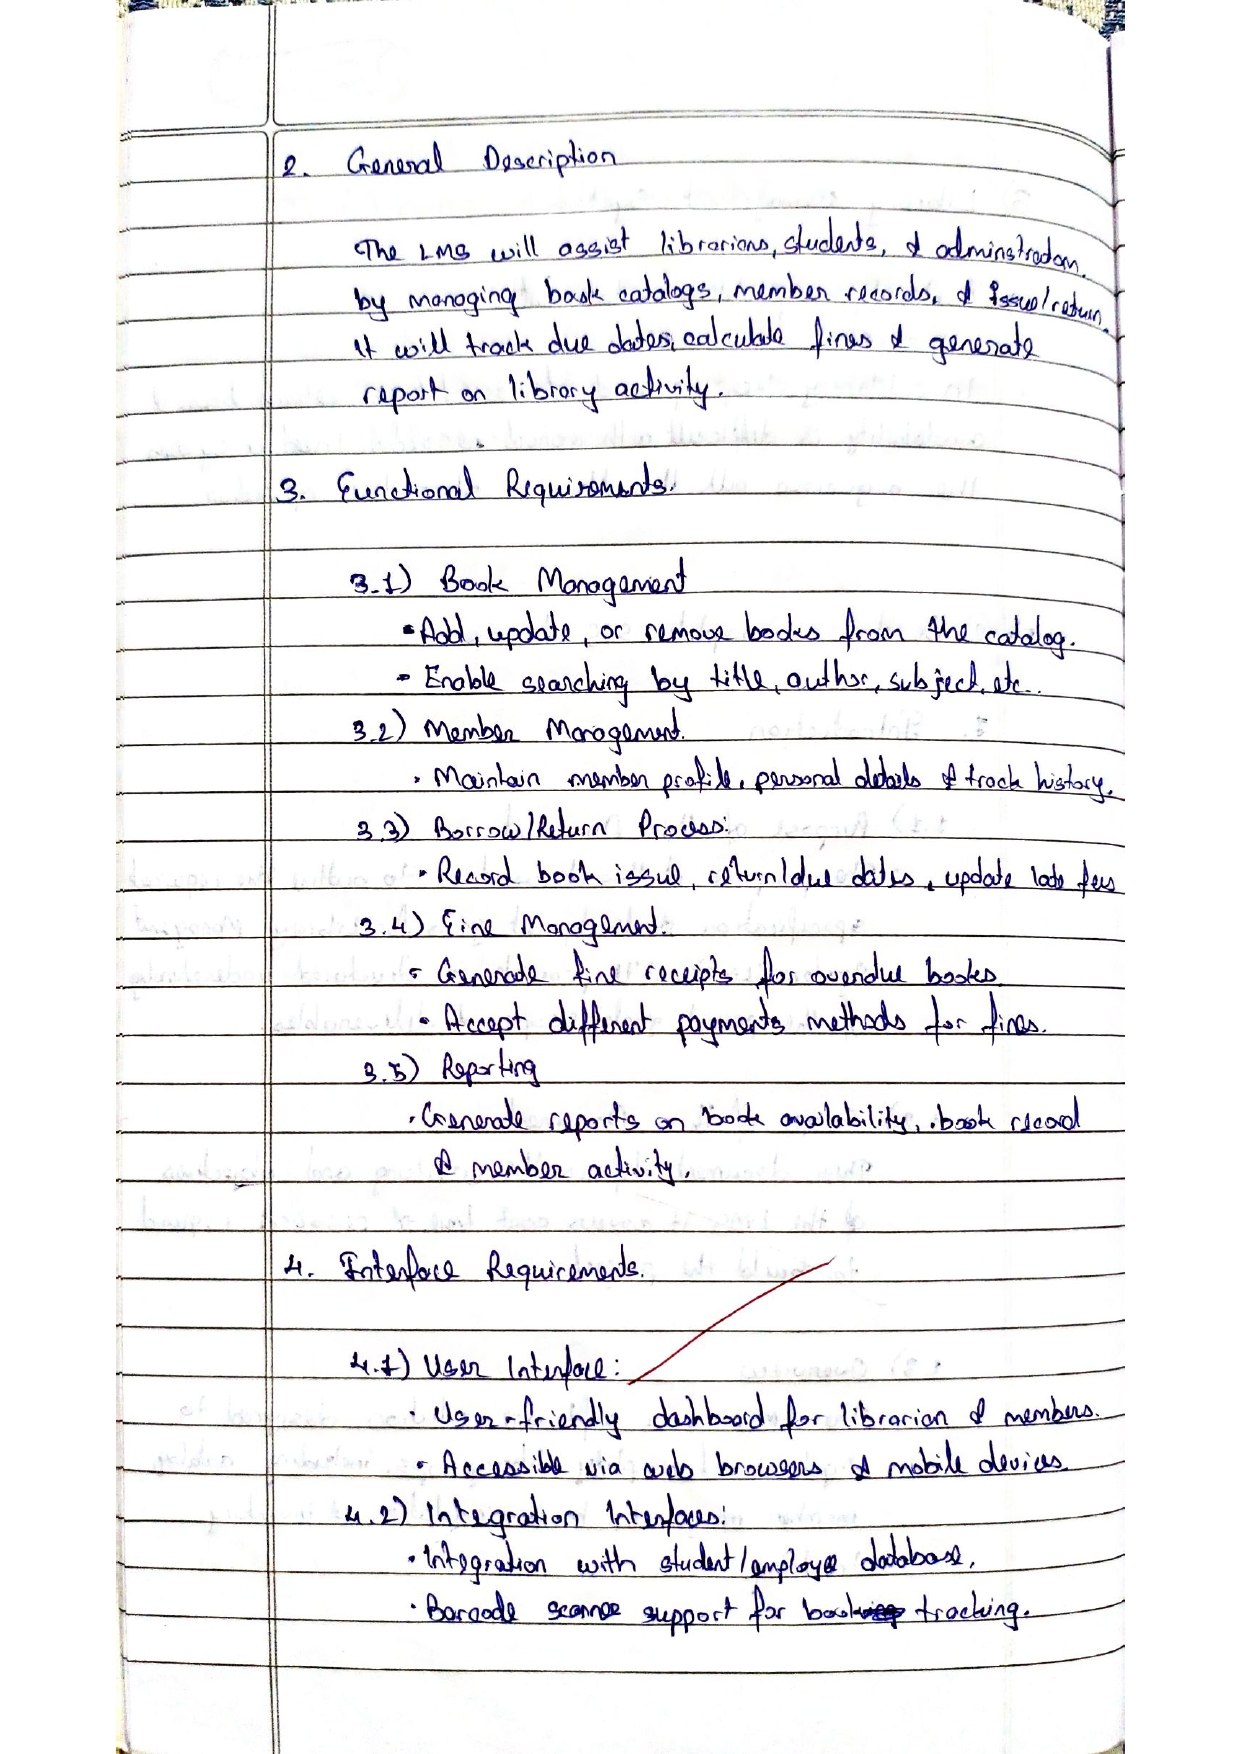 2. General Description
The LMS will assist librarians, students, & adminstrators.
by managing book catalogs, member records, & issue/return.
It will track due dates, calculate fines & generate
report on library activity.
3. Functional Requirements.
3.1) Book Management
• Add, update, or remove books from the catalog.
• Enable searching by title, author, subject, etc..
3.2) Member Management.
• Maintain member profile, personal details & track history.
3.3) Borrow/Return Process:
• Record book issue, return/due dates, update late fees
3.4) Fine Management.
• Generate fine receipts for overdue books.
• Accept different payments methods for fines.
3.5) Reporting
• Generate reports on book availability, book record
& member activity.
4. Interface Requirements.
4.1) User Interface:
• User-friendly dashboard for librarian & members.
• Accessible via web browsers & mobile devices
4.2) Integration Interfaces:
• Integration with student/employe database.
• Barcode support for book tracking.